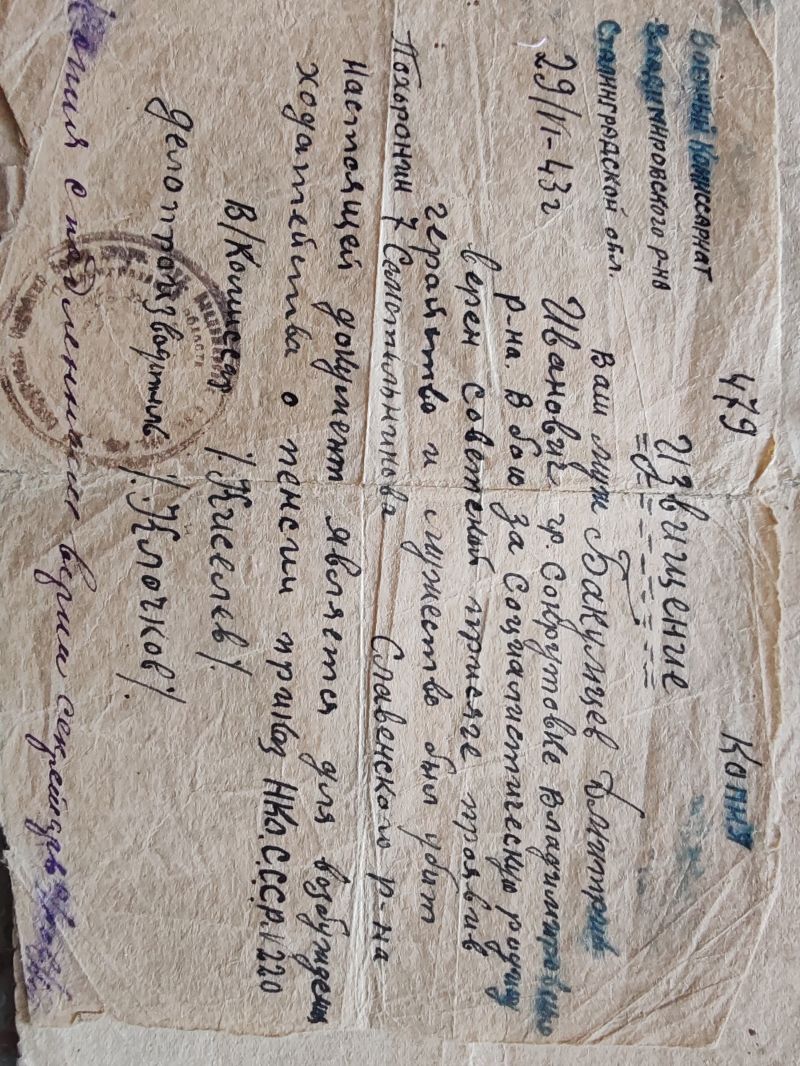 Военный Комиссариат
Владимировского р-на
Сталинградской обл.
29/VI-43г
479
Копия
Извищение
Ваш муж Бакумцев Дмитрий
Иванович гр. Сокрутовке Владимировского
р-на. В бою за Социалистическую родину
верен советской присяге проявив
геройство и мужество был убит
Похоронин 7 Сметильникова Славенского р-на
Настоящей документ является для возбуждения
ходатейства о пенсии приказ НКО.С.С.С.Р. № 220
В/Комиссар /Киселев/.
делопроизводитель /.Клочков/.
Копия с подленником верна секретарь